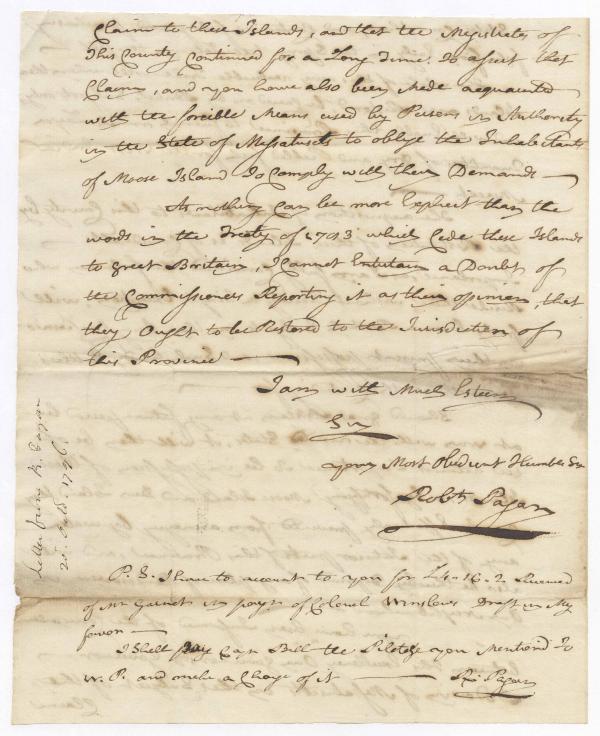 Claim to these Islands, and that the Magistrates of
this County Continued for a Long time to assert that
Claim, and you have also been Made acquainted
with the forcible Means used by Persons in Authority
in the State of Massatusets to oblige the Inhabetants
of Moose Island to Comply with their Demands —
As nothing Can be more Explicit than the
words in the Treaty of 1783 which Cede these Islands
to Great Britain, I Cannot Entertain a Doubt of
the Commissioners Reporting it as their opinion, that
they Ought to be Restored to the Jurisdiction of
this Province —
I am with Much Esteem
Sir
your Most Obedient Humble Ser
Robt Pagan
P. S. I have to account to you for £4-16-2 Received
of Mr Garnet in payt of Colonel Winslows Draft in My
favor —
I Shall pay Capn Bell the Pilotage you Mentiond to
W. P. and make a Charge of it — Rt Pagan
Letter from R. Pagan
Octr. 1796.